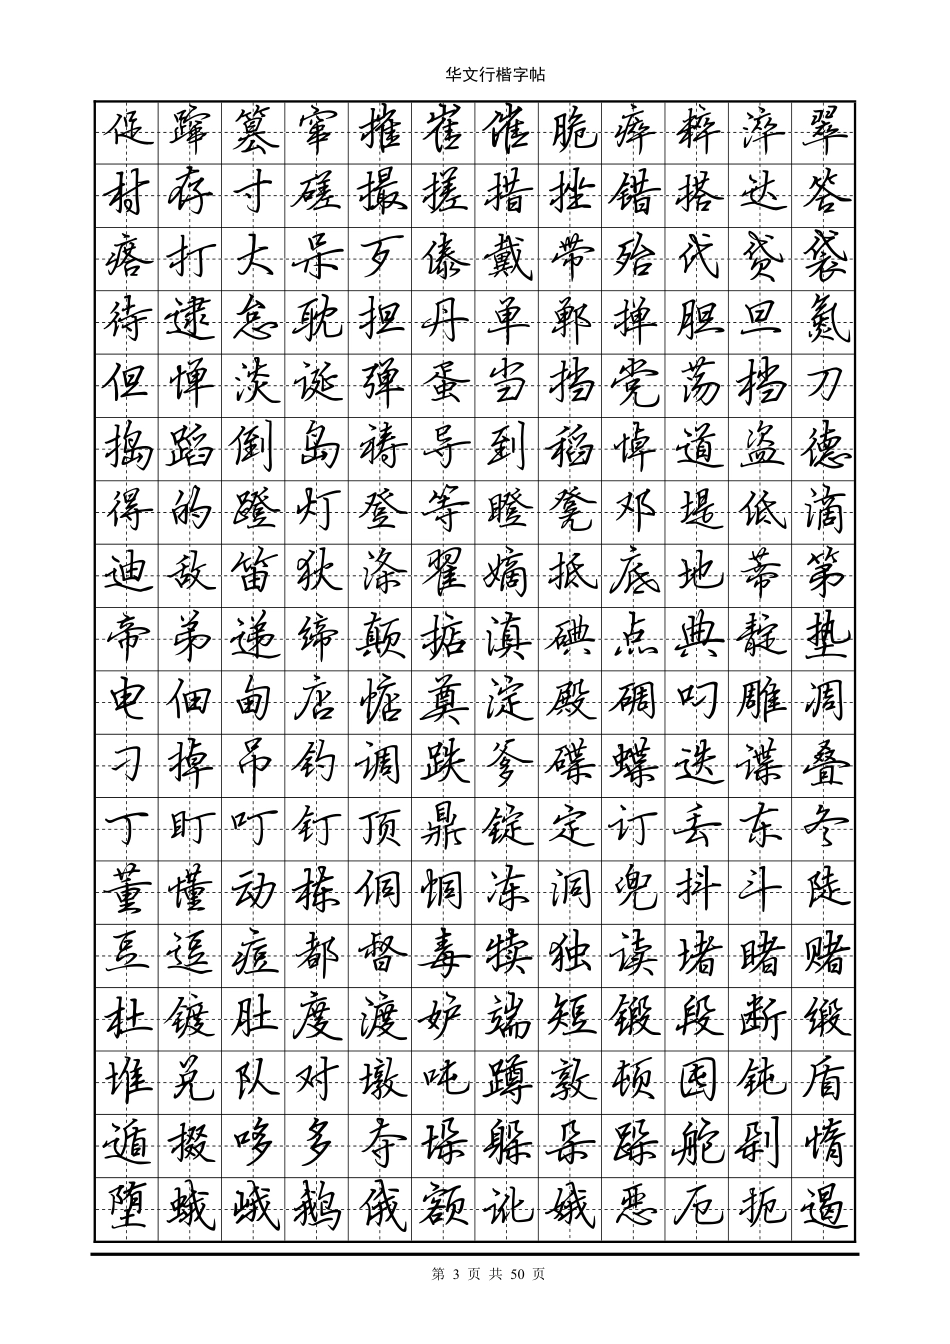 华文行楷字帖
促 蹿 篡 窜 摧 崔 催 脆 瘁 粹 淬 翠
村 存 寸 磋 撮 搓 措 挫 错 搭 达 答
瘩 打 大 呆 歹 傣 戴 带 殆 代 贷 袋
待 逮 怠 耽 担 丹 单 郸 掸 胆 旦 氮
但 惮 淡 诞 弹 蛋 当 挡 党 荡 档 刀
捣 蹈 倒 岛 祷 导 到 稻 悼 道 盗 德
得 的 蹬 灯 登 等 瞪 凳 邓 堤 低 滴
迪 敌 笛 狄 涤 翟 嫡 抵 底 地 蒂 第
帝 弟 递 缔 颠 掂 滇 碘 点 典 靛 垫
电 佃 甸 店 惦 奠 淀 殿 碉 叼 雕 凋
刁 掉 吊 钓 调 跌 爹 碟 蝶 迭 谍 叠
丁 盯 叮 钉 顶 鼎 锭 定 订 丢 东 冬
董 懂 动 栋 侗 恫 冻 洞 兜 抖 斗 陡
豆 逗 痘 都 督 毒 犊 独 读 堵 睹 赌
杜 镀 肚 度 渡 妒 端 短 锻 段 断 缎
堆 兑 队 对 墩 吨 蹲 敦 顿 囤 钝 盾
遁 掇 哆 多 夺 垛 躲 朵 跺 舵 剁 惰
堕 蛾 峨 鹅 俄 额 讹 娥 恶 厄 扼 遏
第 3 页 共 50 页